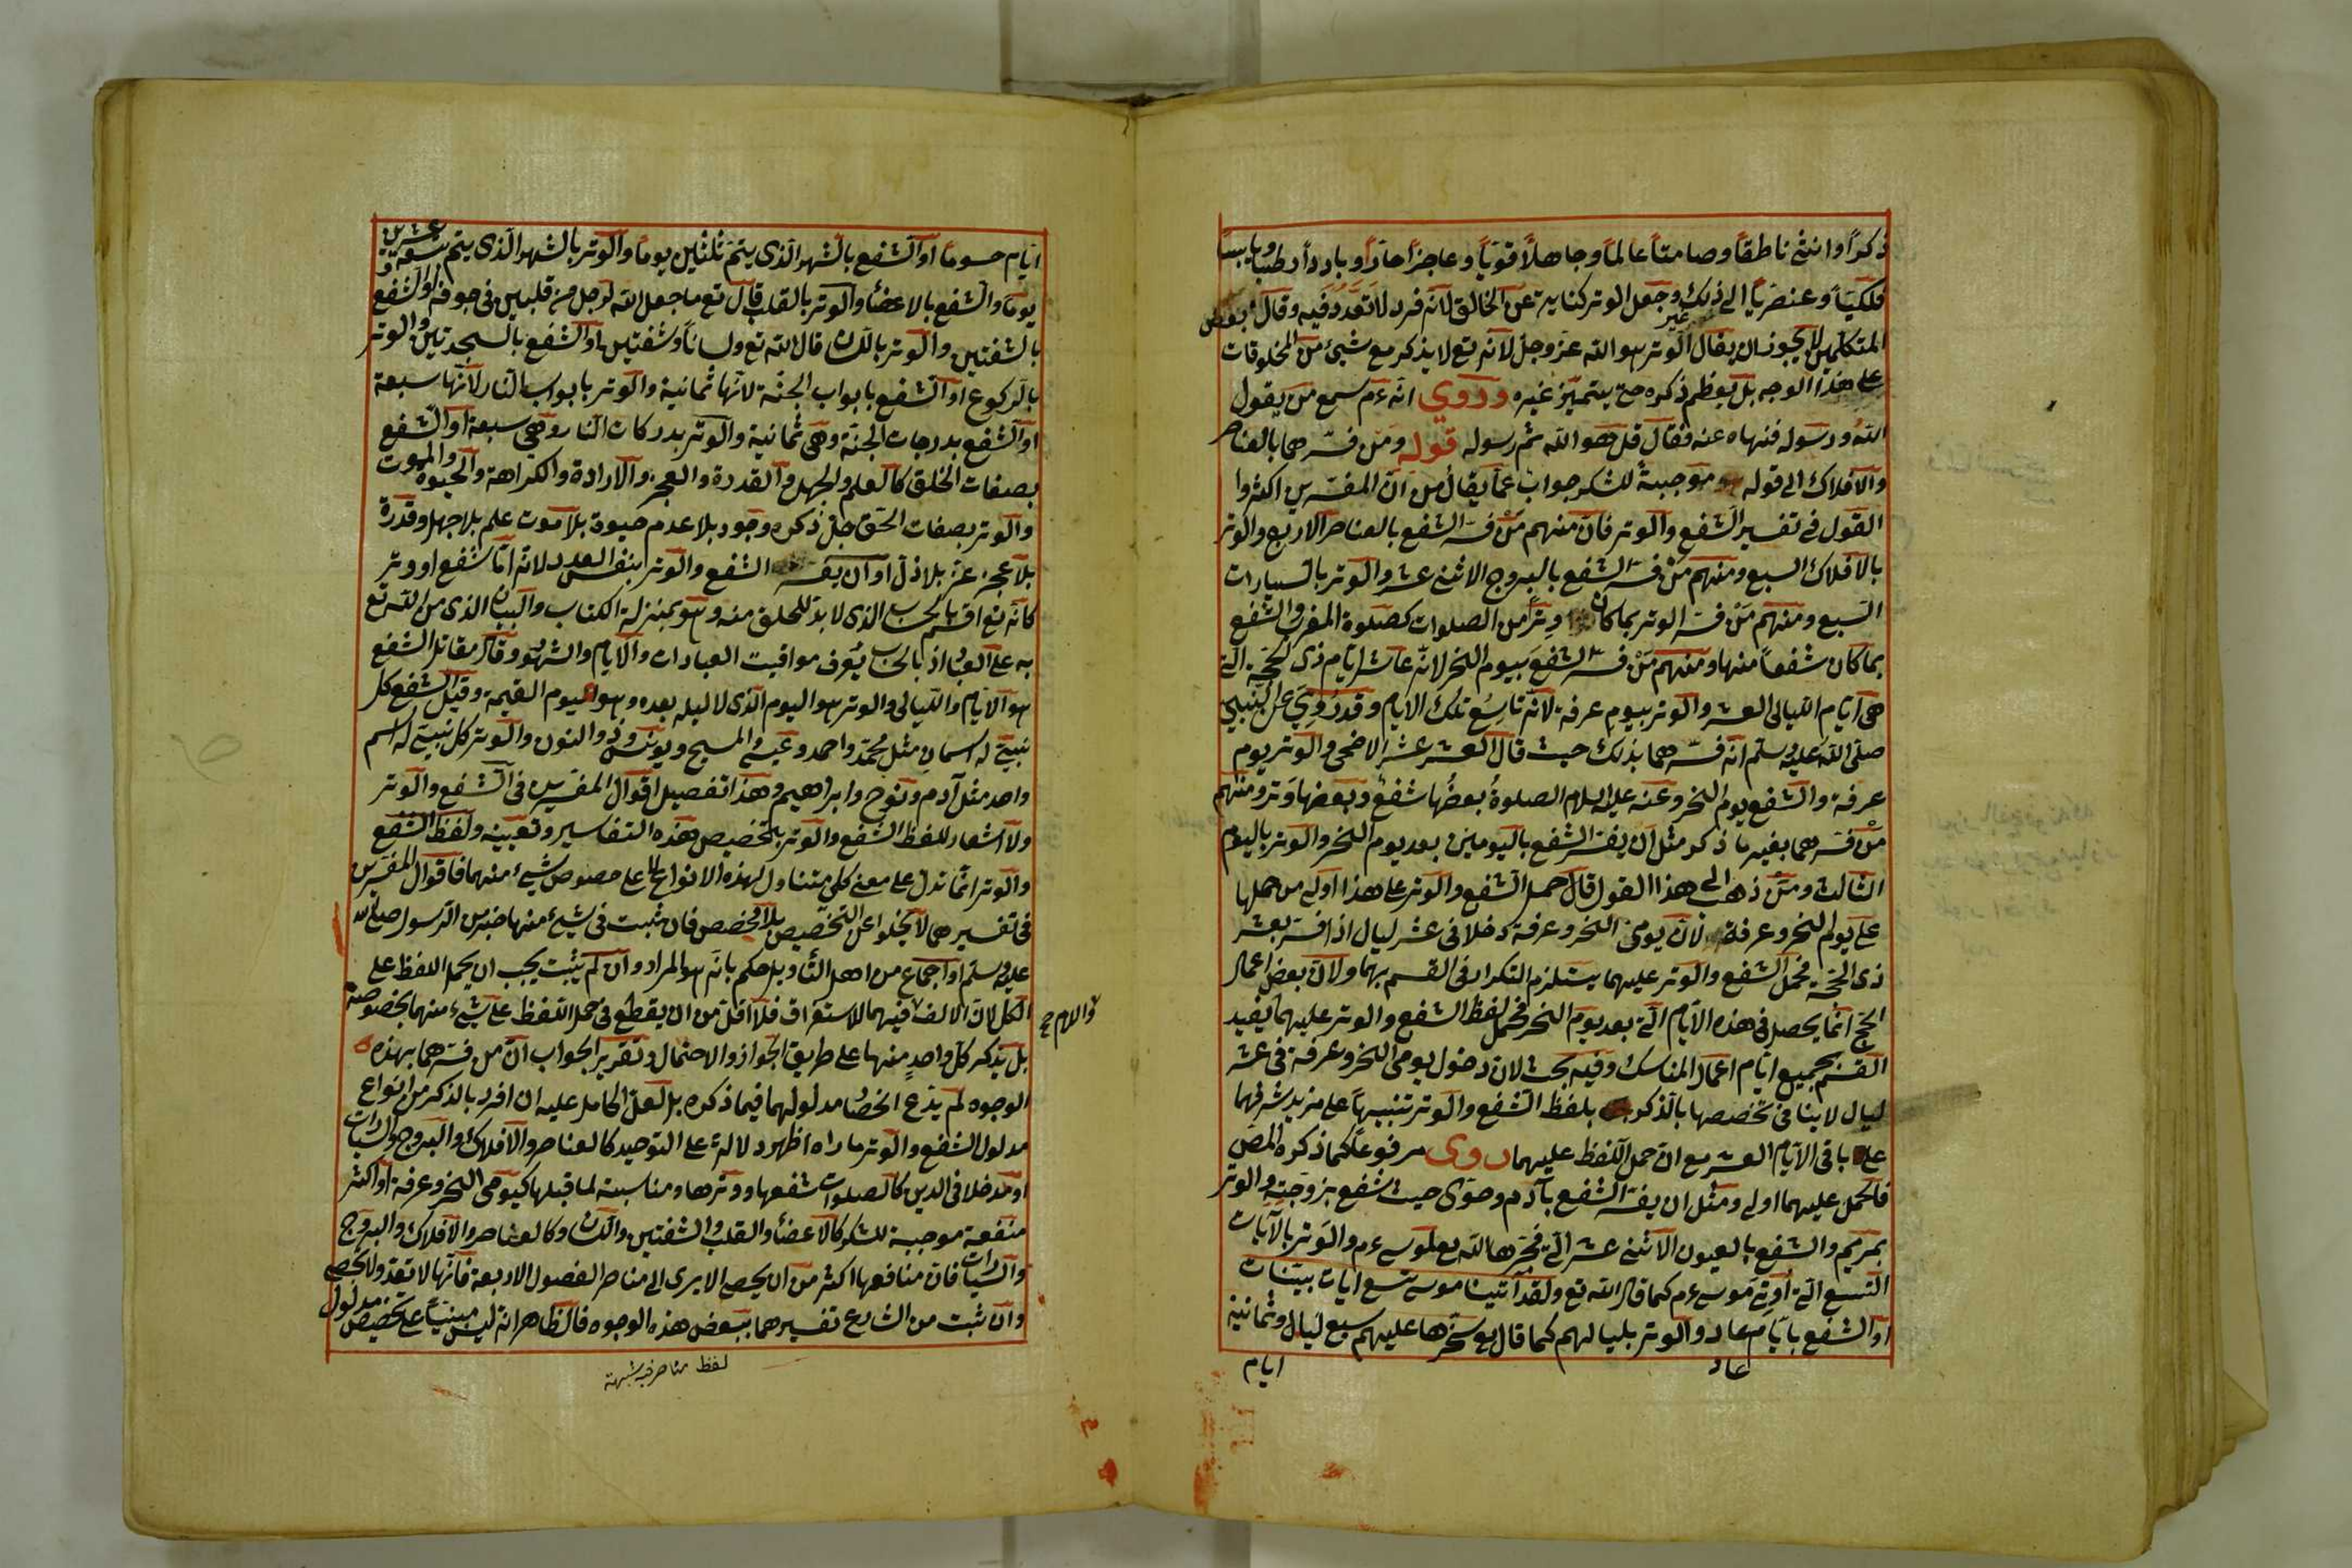 ذكرا وانثى ناطقا وصامتا عالما وجاهلا قويا وعاجزا حارا وباردا رطبا ويابسا
فلكيا وعنصريا الى غير ذلك وجعل الوتر كناية عن الخالق لانه فرد لا تعدد فيه وقال بعض
المتكلمين لا يجوز ان يقال الوتر هو الله عز وجل لانه تع لا يذكر مع شيئ من المخلوقات
على هذا الوجه بل يعظم ذكره حتى يتميز غيره وروى انه ءم سمع من يقول
الله ورسوله فنهاه عنه وقال قل هو الله ثم رسوله قوله ومن فسرهما بالعناصر
والافلاك الى قوله موجبة للشكر جواب عما يقال من ان المفسرين اكثروا
القول في تفسير الشفع والوتر فان منهم من فسر الشفع بالعناصر الاربع والوتر
بالافلاك السبع ومنهم من فسر الشفع بالبروج الاثنى عشر والوتر بالسيارات
السبع ومنهم من فسر الوتر بما كان وترا من الصلوات كصلوة المغرب والشفع
بما كان شفعا منها ومنهم من فسر الشفع بيوم النحر لانه عاشر ايام ذى الحجة التى
هى ايام الليالى العشر والوتر بيوم عرفة لانه تاسع تلك الايام وقد روى عن النبى
صلى الله عليه وسلم انه فسرهما بذلك حيث قال العشر عشر الاضحى والوتر يوم
عرفة والشفع يوم النحر وعنه عليه السلام الصلوة بعضها شفع وبعضها وتر ومنهم
من فسرهما بغير ما ذكر مثل ان يفسر الشفع باليومين بعد يوم النحر والوتر باليوم
الثالث ومن ذهب الى هذا القول قال حمل الشفع والوتر على هذا اولى من حملها
على يوم النحر وعرفة لان يومى النحر وعرفة دخلا فى عشر ليال اذا فسر بعشر
ذى الحجة فحمل الشفع والوتر عليهما يستلزم التكرار فى القسم بهما ولان بعض اعمال
الحج انما يحصل فى هذه الايام التى بعد يوم النحر فحمل لفظ الشفع والوتر عليهما يفيد
القسم بجميع ايام اعمال المناسك وفيه بحث لان دخول يومى النحر وعرفة فى عشر
ليال لا ينافى تخصصها بالذكر بلفظ الشفع والوتر تنبيها على مزيد شرفهما
على باقى الايام العشر مع ان حمل اللفظ عليهما روى مرفوعا كما ذكره المص
فالحمل عليهما اولى ومثل ان يفسر الشفع بآدم وحوى حيث شفع بزوجته والوتر
بمريم والشفع بالعيون الاثنى عشر التى فجرها الله تع لموسى ءم والوتر بالآيات
التسع التى اوتى موسى ءم كما قال الله تع ولقد آتينا موسى تسع ايات بينات
او الشفع بايام عاد والوتر بلياليهم كما قال تع سخرها عليهم سبع ليال وثمانية
عاد
ايام
ايام حسوما او الشفع بالشهر الذى يتم ثلثين يوما والوتر بالشهر الذى يتم تسعة وعشرين
يوما والشفع بالاعضاء والوتر بالقلب قال تع ما جعل الله لرجل من قلبين فى جوفه او الشفع
بالشفتين والوتر باللسان قال الله تع ولسانا وشفتين او الشفع بالسجدتين والوتر
بالركوع او الشفع بابواب الجنة لانها ثمانية والوتر بابواب النار لانها سبعة
او الشفع بدرجات الجنة وهى ثمانية والوتر بدركات النار وهى سبعة او الشفع
بصفات الخلق كالعلم والجهل والقدرة والعجز والارادة والكراهة والحيوة والموت
والوتر بصفات الحق جل ذكره وجود بلا عدم حيوة بلا موت علم بلا جهل وقدرة
بلا عجز عز بلا ذل او ان يفسر الشفع والوتر بنفس العدد لانه اما شفع او وتر
كانه تع اقسم بالحساب الذى لا بد للخلق منه وهو بمنزلة الكتاب والبيان الذى من الله تع
به على العباد اذ بالحساب يعرف مواقيت العبادات والايام والشهور وقال مقاتل الشفع
هو الايام والليالى والوتر هو اليوم الذى لا ليله بعده وهو يوم القيمة وقيل الشفع كل
نبى له اسمان مثل محمد واحمد وعيسى والمسيح ويونس وذو النون والوتر كل نبى له اسم
واحد مثل آدم ونوح وابراهيم وهذا تفصيل اقوال المفسرين فى الشفع والوتر
ولا اشعار للفظ الشفع والوتر بتخصيص هذه التفاسير وتعيينه ولفظ الشفع
والوتر انما تدل على معنى كلى متناول لهذه الانواع لا على خصوص شيء منهما فاقوال المفسرين
فى تفسيرهما لا يخلوا عن التخصيص بلا مخصص فان ثبت فى شيء منها خبر من الرسول صلى الله
عليه وسلم او اجماع من اهل التأويل حكم بانه هو المراد وان لم يثبت يجب ان يحمل اللفظ على
الكل لان الالف فيهما للاستغراق فلا اقل من ان يقطع فى حمل اللفظ على شيء منهما بخصوصه
واللام صح
بل يذكر كل واحد منها على طريق الجواز والاحتمال وتقرير الجواب ان من فسرهما بهذه
الوجوه لم يدع انحصار مدلولهما فيما ذكره بل لعل الحامل عليه ان افرد بالذكر من انواع
مدلول الشفع والوتر ما راه اظهر دلالة على التوحيد كالعناصر والافلاك والبروج والسيارات
او مدخلا فى الدين كالصلوات شفعها ووترها ومناسبة لما قبلها كيومى النحر وعرفة او اكثر
منفعة موجبة للشكر كالاعضاء والقلب والشفتين واللسان وكالعناصر والافلاك والبروج
والسيارات فان منافعها اكثر من ان يحصى الا يرى الى منافع الفصول الاربعة فانها لا تعد ولا تحصى
وان ثبت من الشارع تفسيرهما ببعض هذه الوجوه فالظاهر انه ليس مبنيا على تخصيص مدلول
لفظ